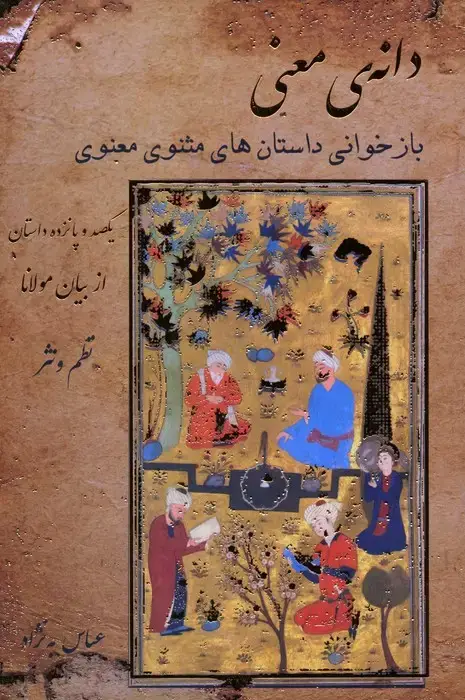 دانه‌ی معنی
بازخوانی داستان های مثنوی معنوی
یکصد و پانزده داستان
از بیان مولانا
نظم و نثر
عباس به نژاد